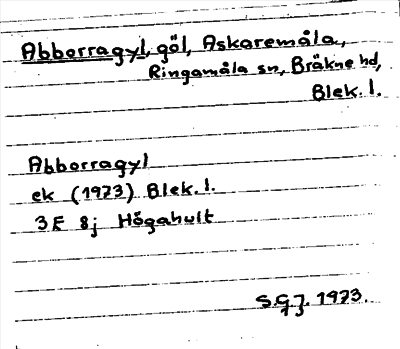 Abborragyl, göl, Askaremåla,
Ringamåla sn, Bräkne hd,
Blek. l.
Abborragyl
ek (1973) Blek. l.
3F 8j Högahult
S.G.J. 1973.